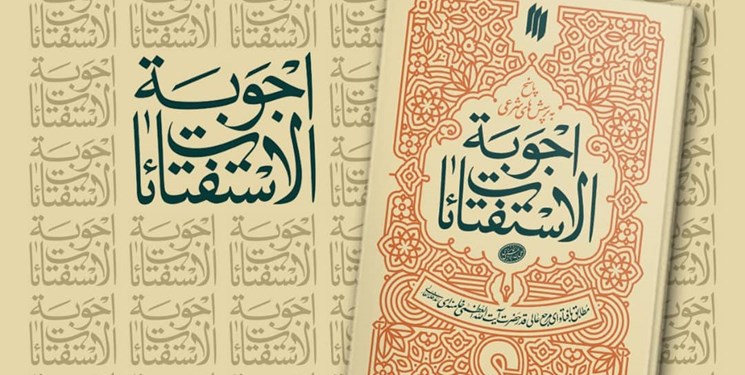 اجوبة
الاستفتائات
پاسخ
به پرسش‌های شرعی
اجوبة
الاستفتائات
مطابق با فتاوای مرجع عالی‌قدر حضرت آیت الله العظمی خامنه‌ای